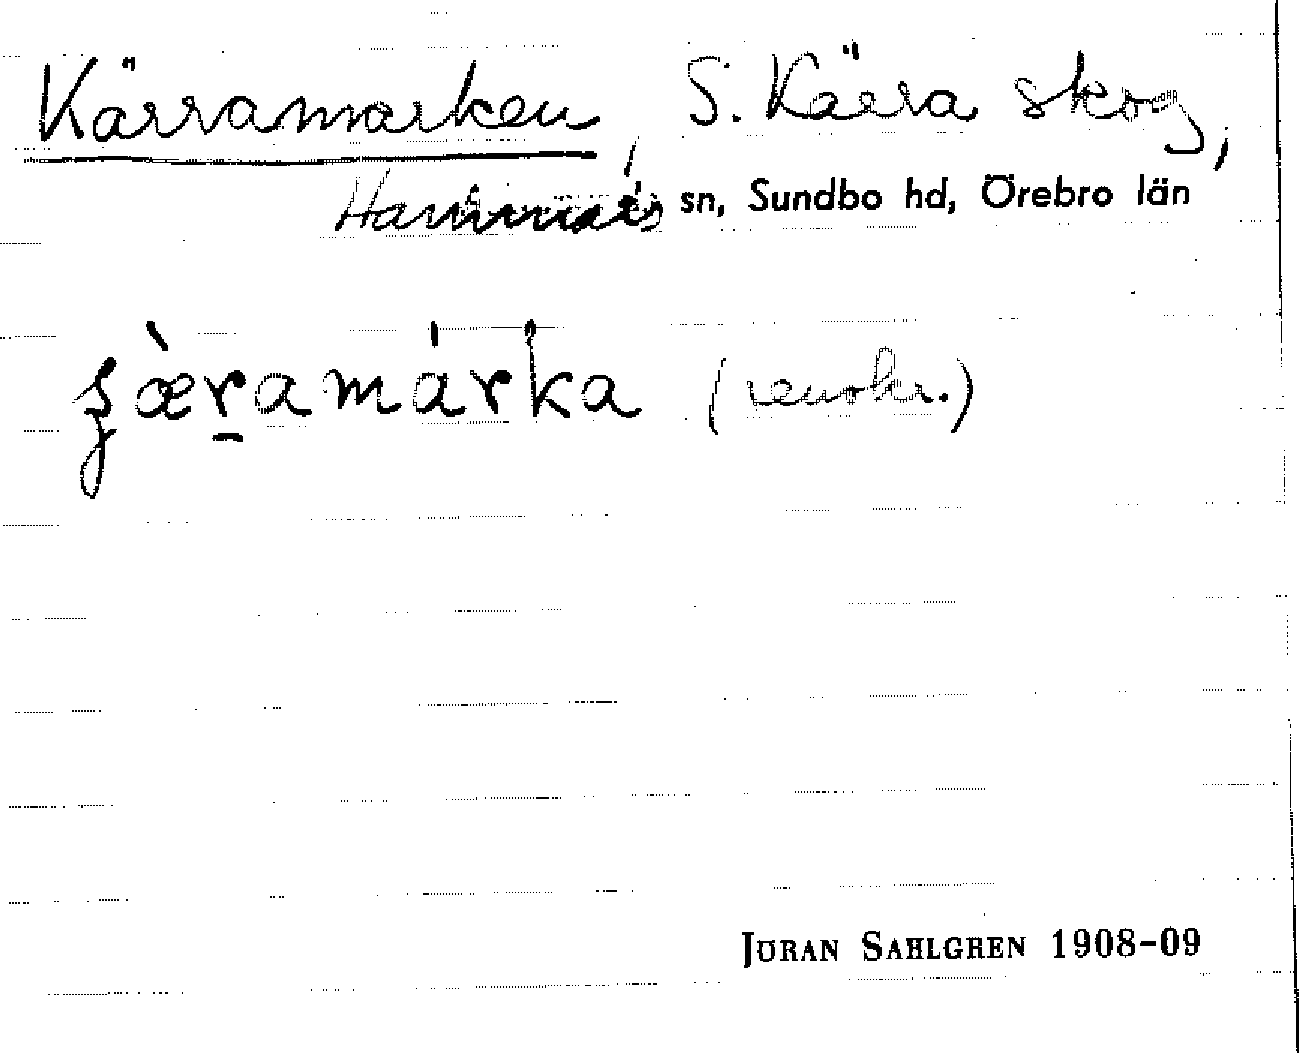 Kärramarken, S. Kärra skog,
Hammars sn, Sundbo hd, Örebro län
(renskr.)
JÖRAN SAHLGREN 1908-09